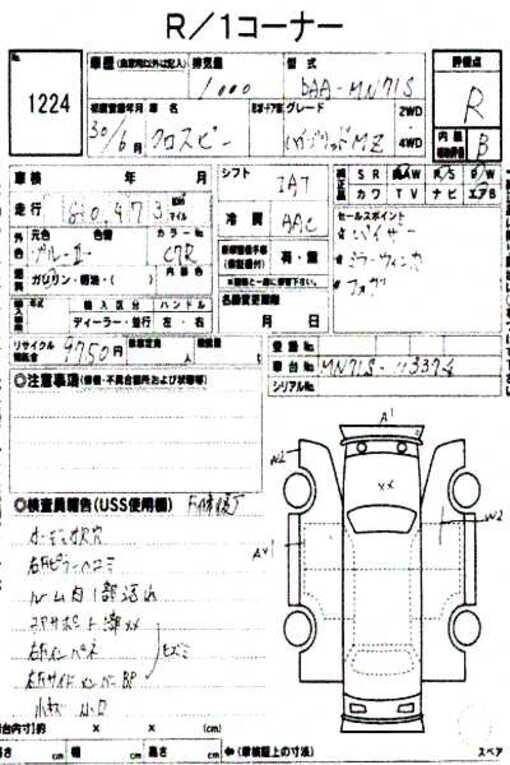 R/1コーナー
No.
1224
車種(自家用以外は記入) 排気量 型式 評価点
1000 DAA-MN71S R
初度登録年月 車名 ドア数 グレード 2WD 4WD
30/6月 クロスビー ハイブリッドMZ
内装 補助評価 B
車検 年 月
シフト IAT
走行 80,973 km マイル
冷房 AAC
外色 元色 色替 カラーNo.
ブルーII C7R
燃料 ガソリン・軽油・( ) 内装色
有・無
名義変更期限
月 日
純正品 SR AAW PS PW
カワ TV ナビ エアB
セールスポイント
☆バイザー
☆ミラーウィンカ
☆フォグ
輸入車 年式 輸入区分 ハンドル
ディーラー・並行 左・右
リサイクル預託金 9750円 乗車定員 人 積載量 t
登録No.
車台No. MN71S-
シリアルNo.
◎注意事項(修復・不具合個所および状態等)
◎検査員報告(USS使用欄)
オーディオ穴
右Fピラーヘコミ
ルーム内1部汚れ
コアサポート1部XX
右Fインパネ
右Fサイドメンバー BP
ヒズミ
小キズ
A1
W2
XX
W2
AX1
(荷台内寸)約 × × (cm)
長さ cm 幅 cm 高さ cm ←(車検証上の寸法)
スペア